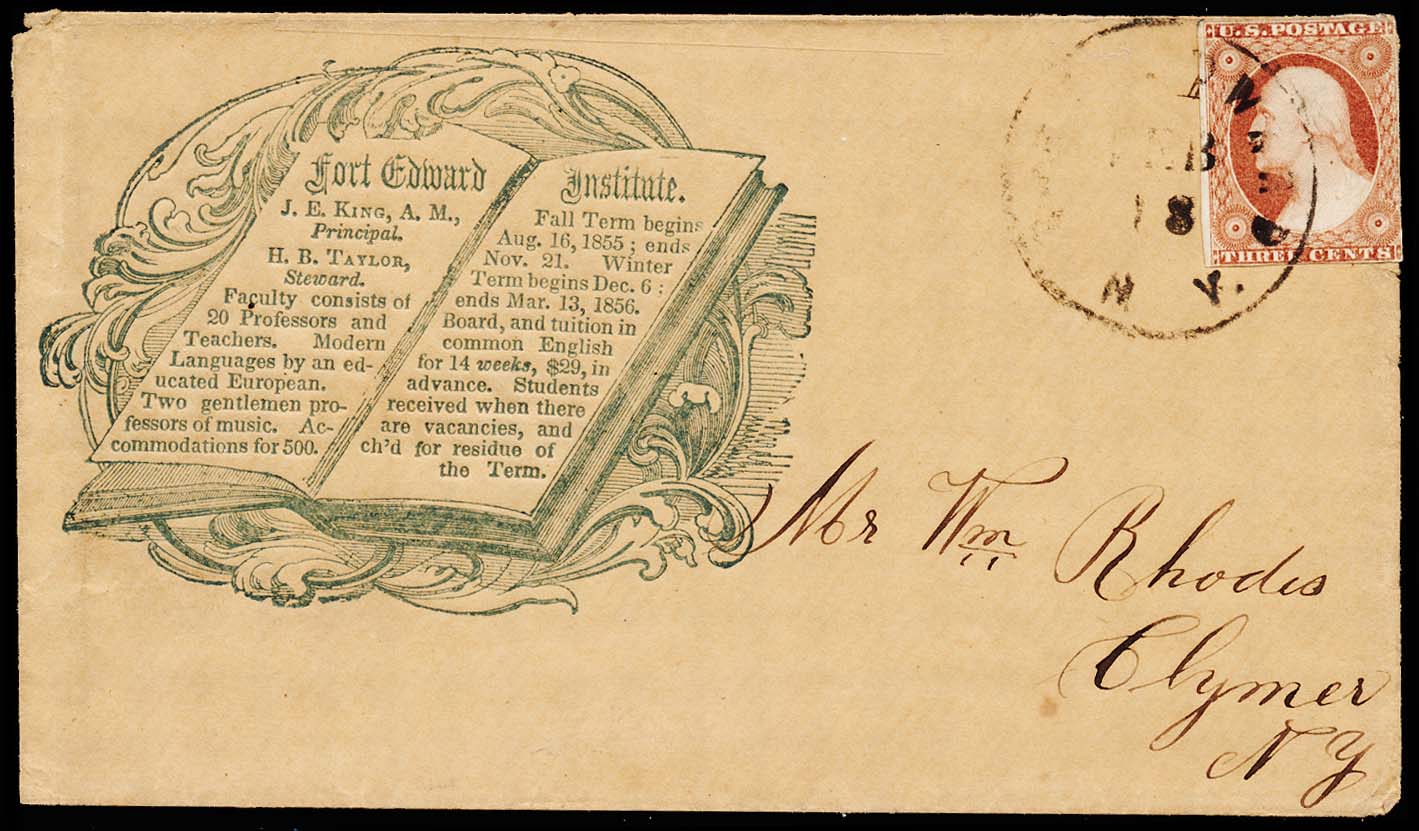 Fort Edward
J. E. King, A. M.,
Principal.
H. B. Taylor,
Steward.
Faculty consists of
20 Professors and
Teachers. Modern
Languages by an ed-
ucated European.
Two gentlemen pro-
fessors of music. Ac-
commodations for 500.
Institute.
Fall Term begins
Aug. 16, 1855 ; ends
Nov. 21. Winter
Term begins Dec. 6 ;
ends Mar. 13, 1856.
Board, and tuition in
common English
for 14 weeks, $29, in
advance. Students
received when there
are vacancies, and
ch'd for residue of
the Term.
U.S. POSTAGE
THREE CENTS
18
N Y.
Mr Wm Rhodes
Clymer
N Y